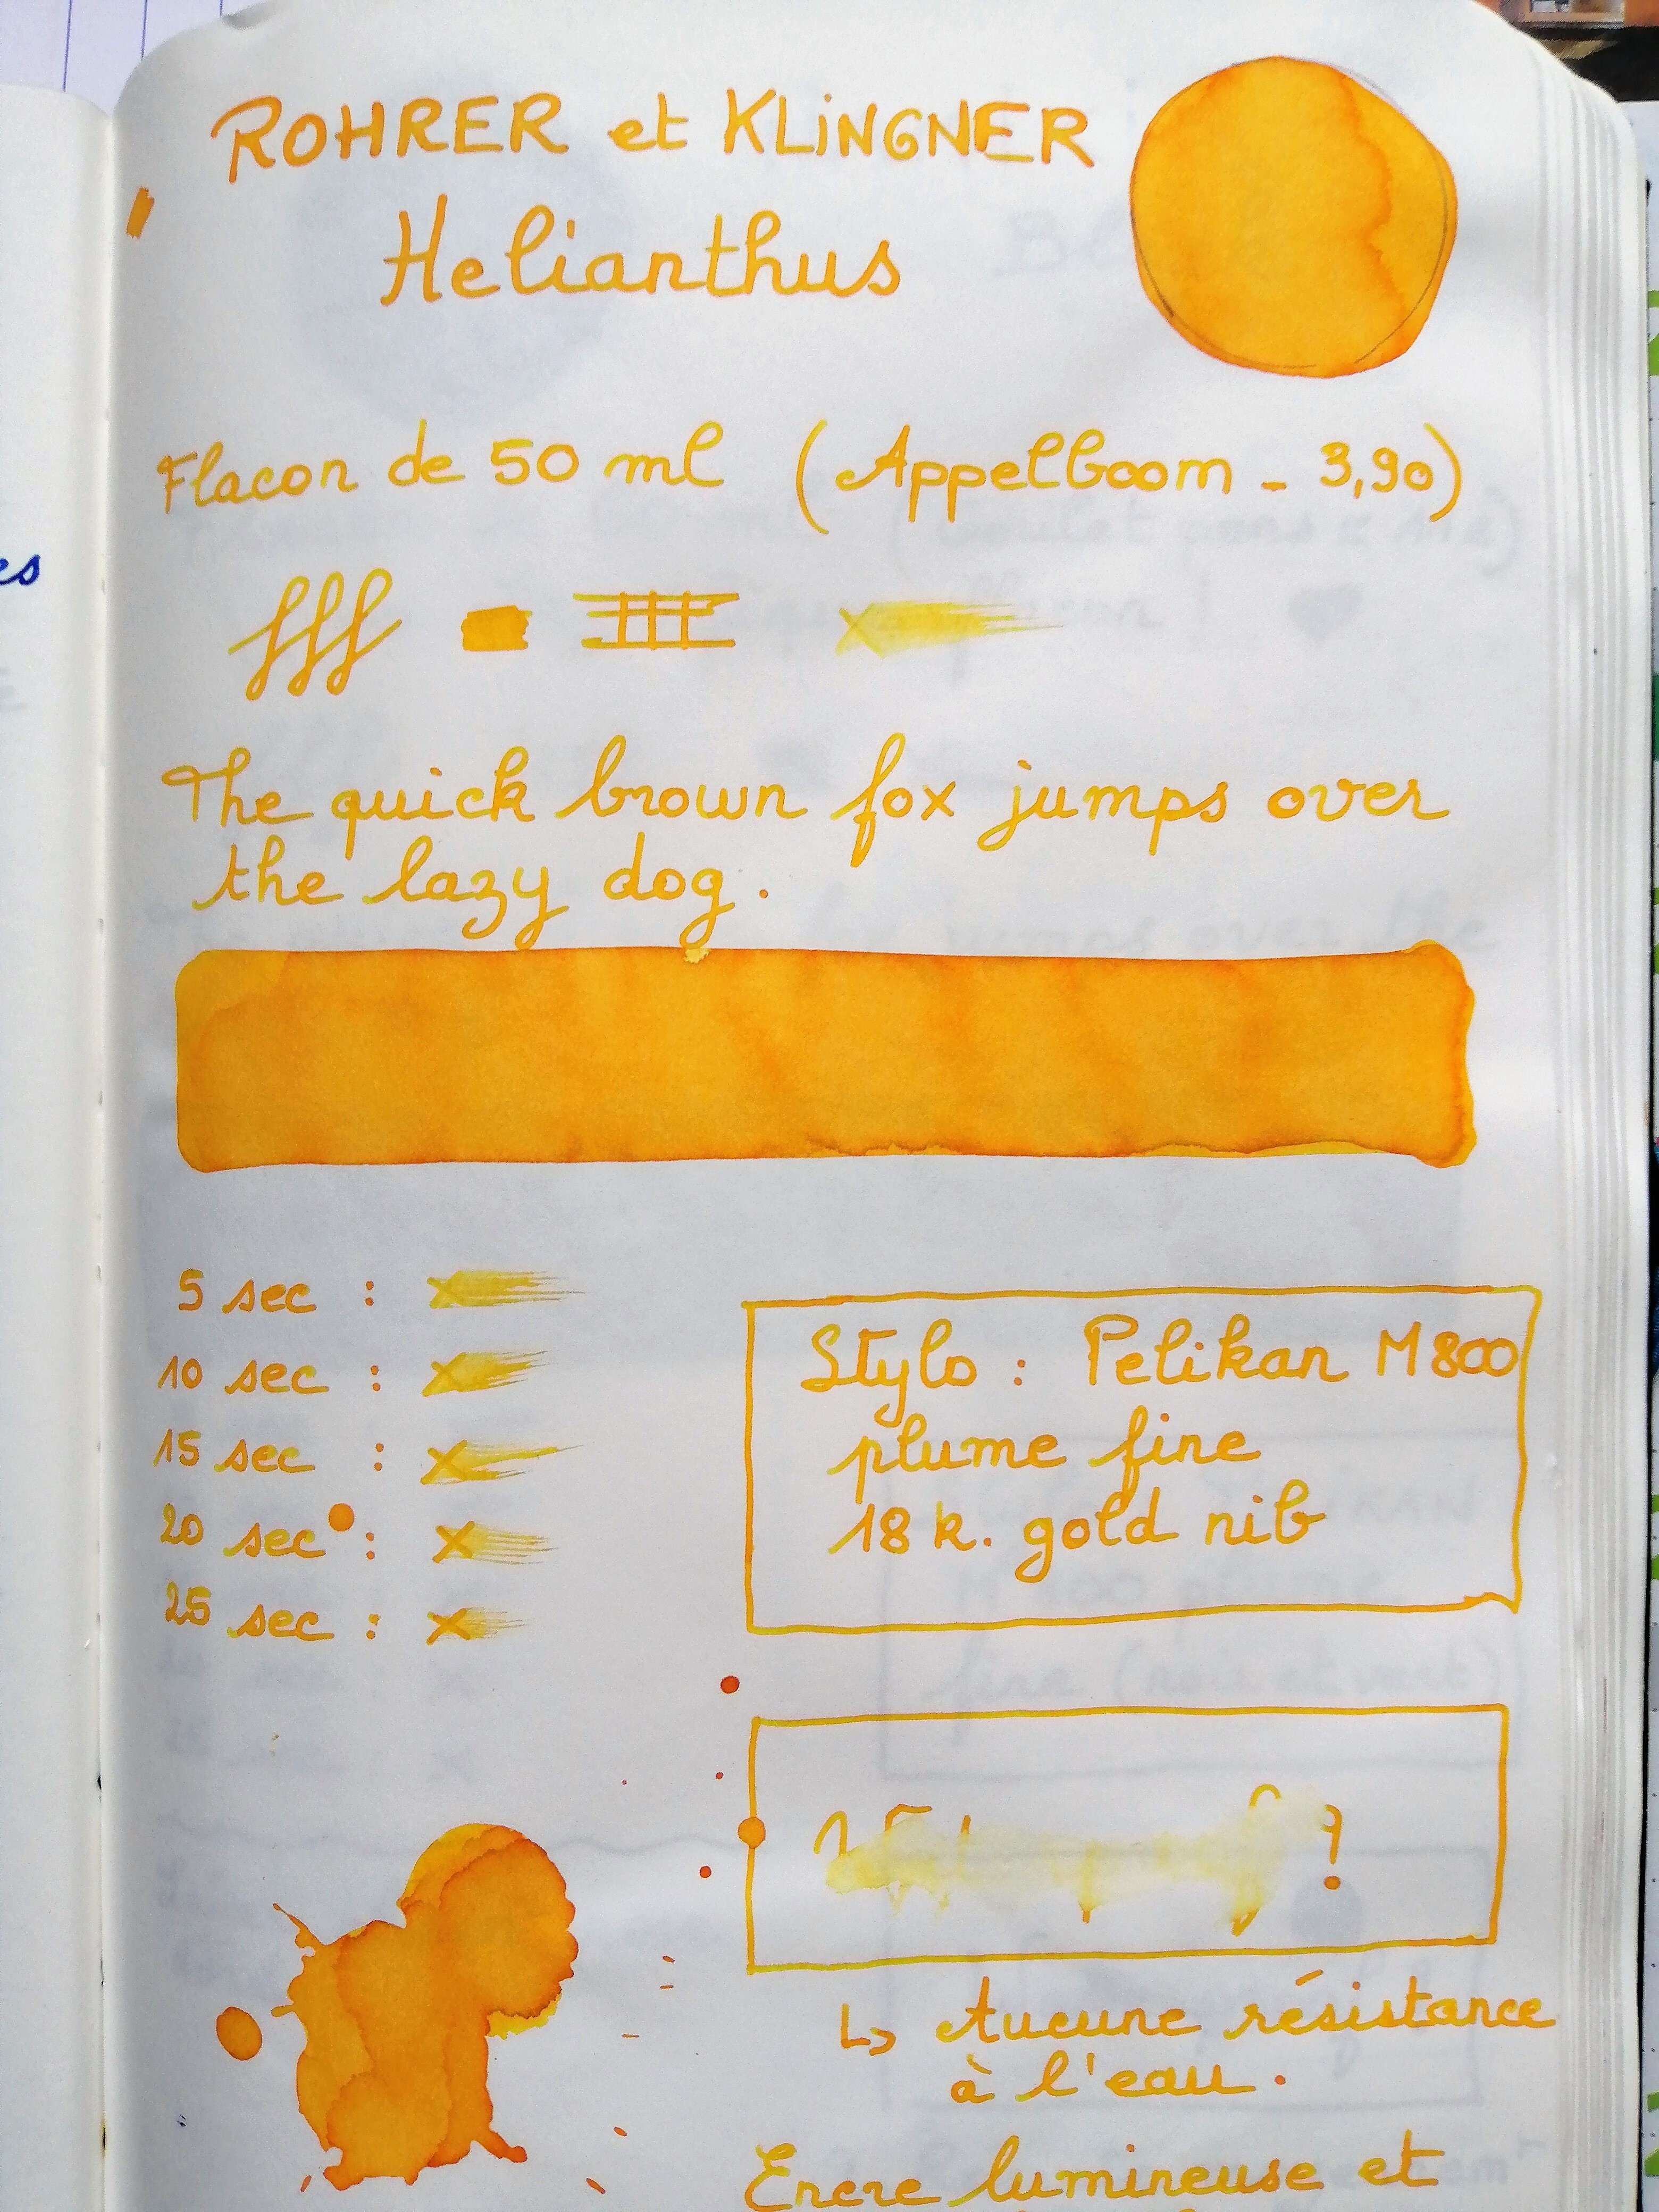 ROHRER et KLINGNER
Helianthus
Flacon de 50 ml (Appelboom - 3,90)
fff
The quick brown fox jumps over
the lazy dog.
5 sec : x
10 sec : x
15 sec : x
20 sec : x
25 sec : x
Stylo : Pelikan M800
plume fine
18 k. gold nib
↳ Aucune résistance
à l'eau.
Encre lumineuse et
es